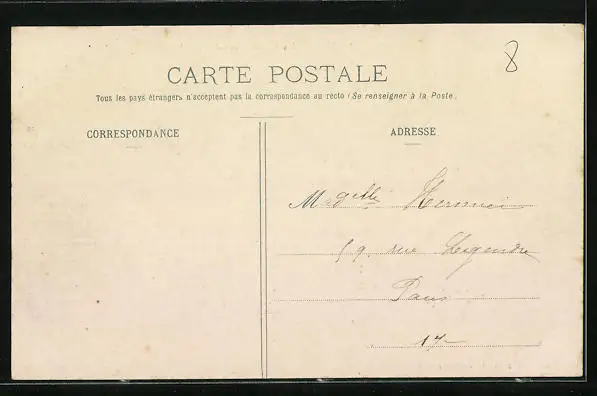 8
CARTE POSTALE
Tous les pays étrangers n'acceptent pas la correspondance au recto (Se renseigner à la Poste.)
CORRESPONDANCE
ADRESSE
59, rue Legendre
Paris
17